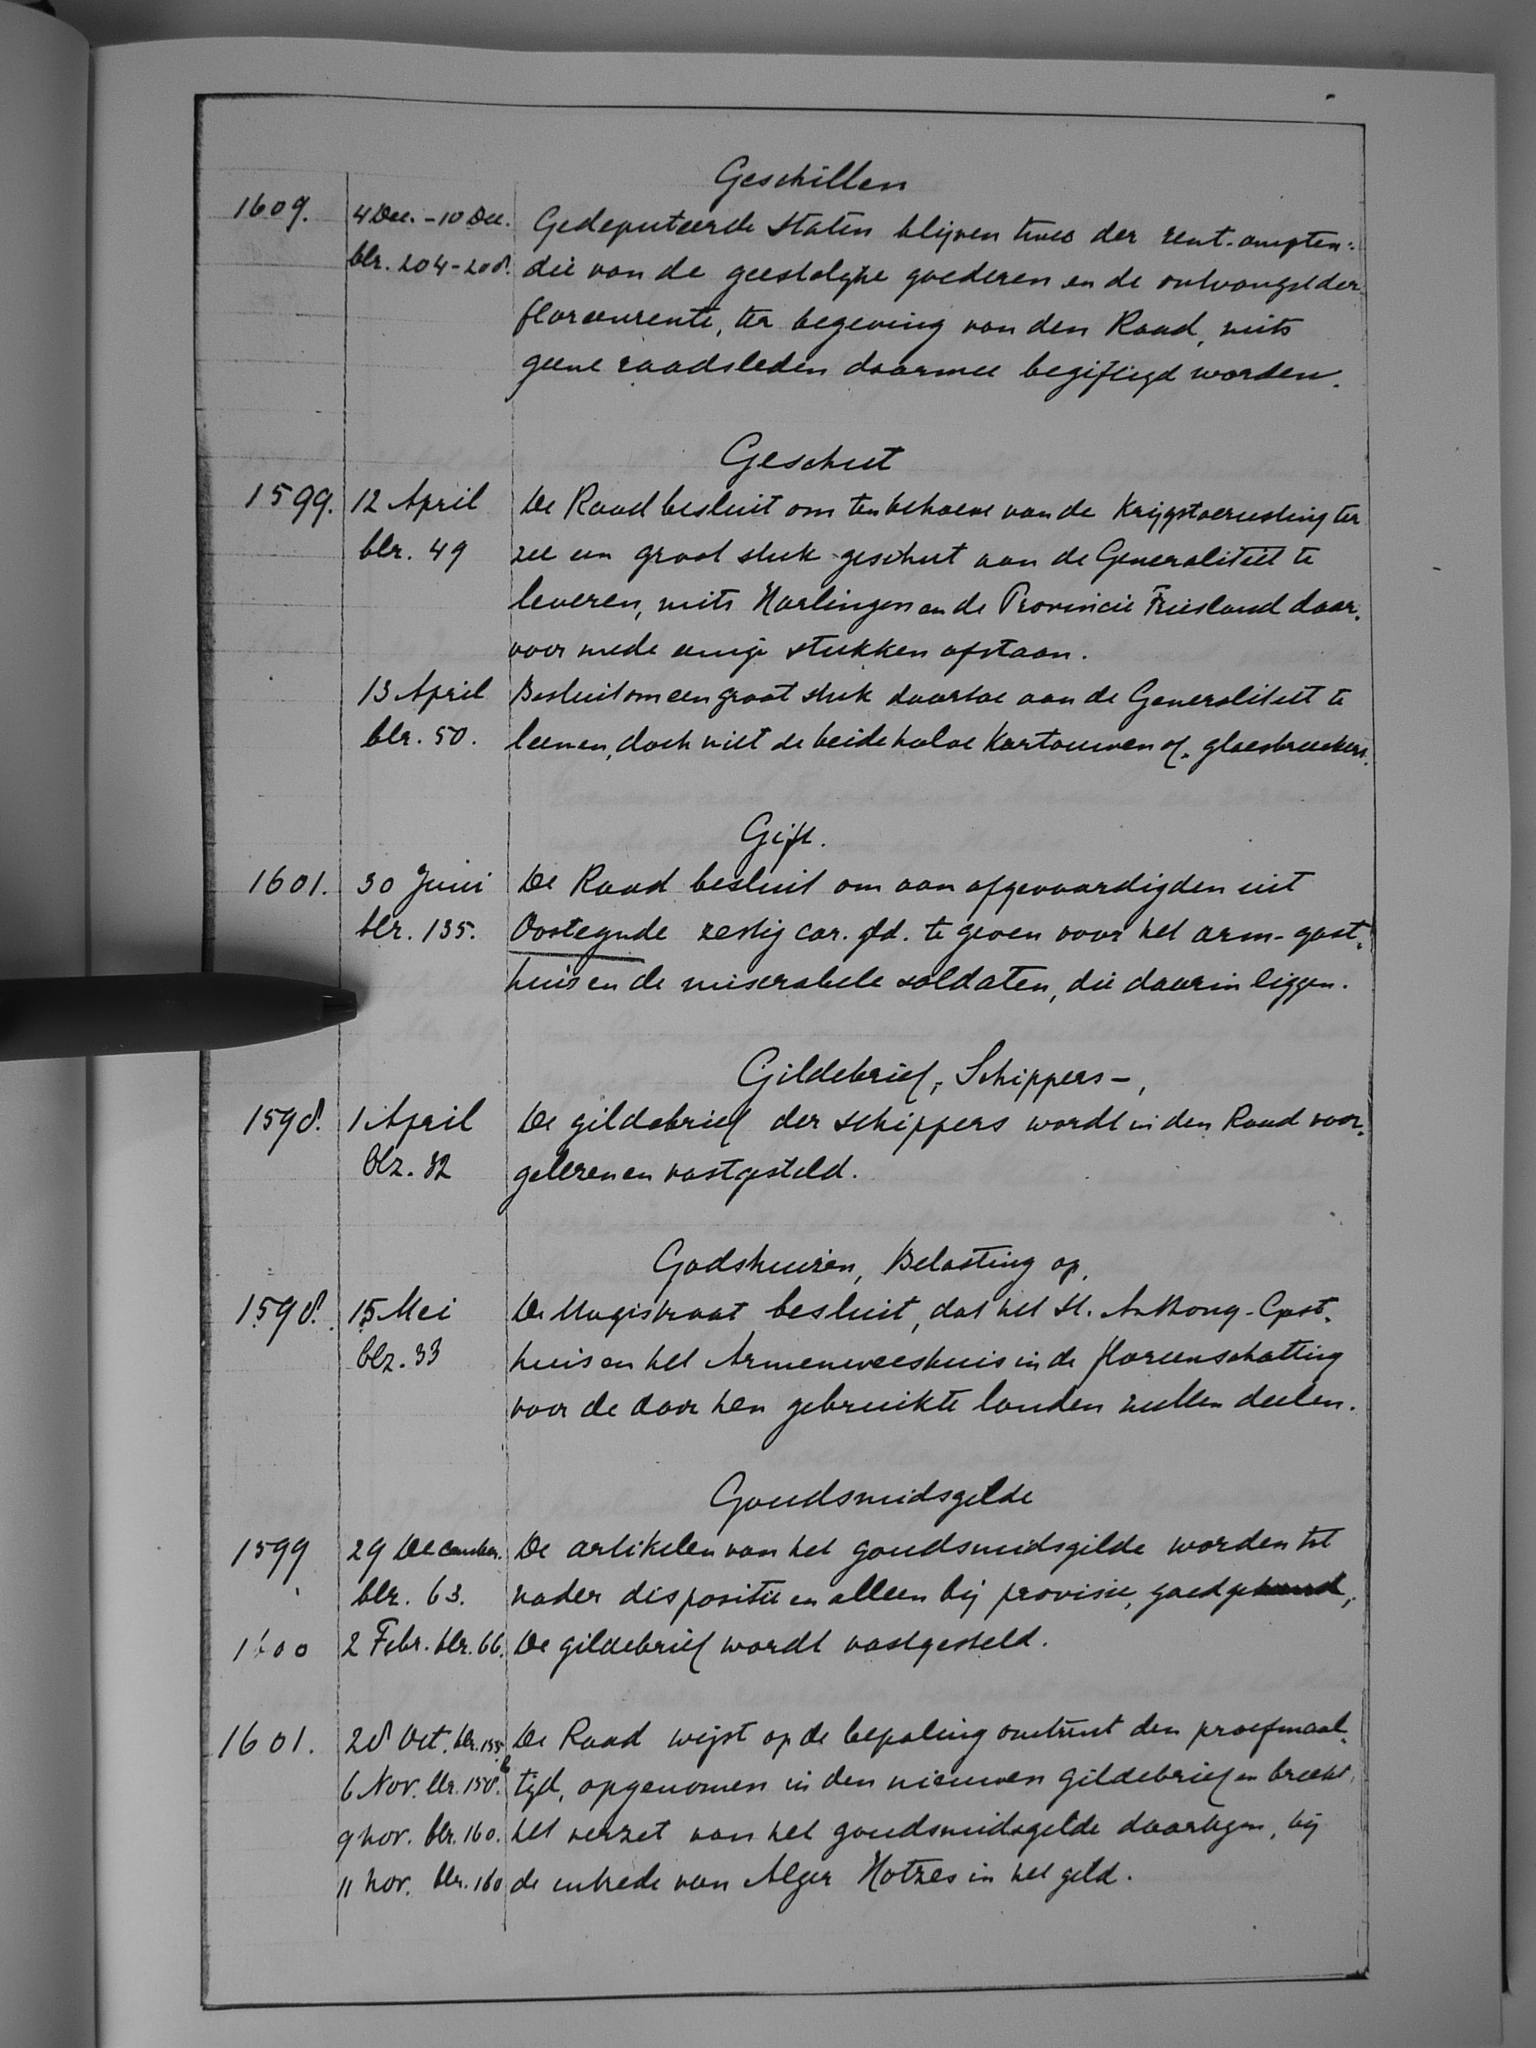 Geschillen
1609. 4 Dec. - 10 Dec. Gedeputeerde Staten blijven der rent-ampten:
blz. 204-208. die van de geestelijke goederen en de ontvangelder
floreenrente, ter begeving van den Raad, mits
geene raadsleden daarmee begiftigd worden.
Geschut
1599. 12 April De Raad besluit om ten behoeve van de Krijgstoerusting ter
blz. 49 zee een groot stuk geschut aan de Generaliteit te
leveren, mits Harlingen en de Provincie Friesland daar-
voor mede eenige stukken afstaan.
13 April Besluit om een groot stuk daartoe aan de Generaliteit te
blz. 50. leenen, doch niet de beide halve Kartouwen of glaesbreekers.
Gift.
1601. 30 Juni De Raad besluit om aan afgevaardigden uit
blz. 135. Oostegnde zestig car. gld. te geven voor het arm-gast-
huis en de miserabele soldaten, die daarin liggen.
Gildebrief, Schippers-,
1598. 1 April De gildebrief der schippers wordt in den Raad voor-
blz. 32 gelezen en vastgesteld.
Godshuizen, Belasting op,
1598. 15 Mei De Magistraat besluit, dat het St. Anthony-Gast-
blz. 33 huis en het Armenweeshuis in de floreenschatting
voor de door hen gebruikte landen zullen deelen.
Goudsmidsgilde
1599 29 December. De artikelen van het goudsmidsgilde worden tot
blz. 63. nader dispositie en alleen bij provisie, goedgekeurd,
1600 2 Febr. blz. 66. De gildebrief wordt vastgesteld.
1601. 28 Oct. blz. 155 De Raad wijst op de bepaling omtrent den proefmaal-
6 Nov. blz. 158. tijd, opgenomen in den nieuwen gildebrief en breekt
9 nov. blz. 160. het verzet van het goudsmidsgelde daartegen, bij
11 nov. blz. 160 de intrede van Alger Hotzes in het geld.